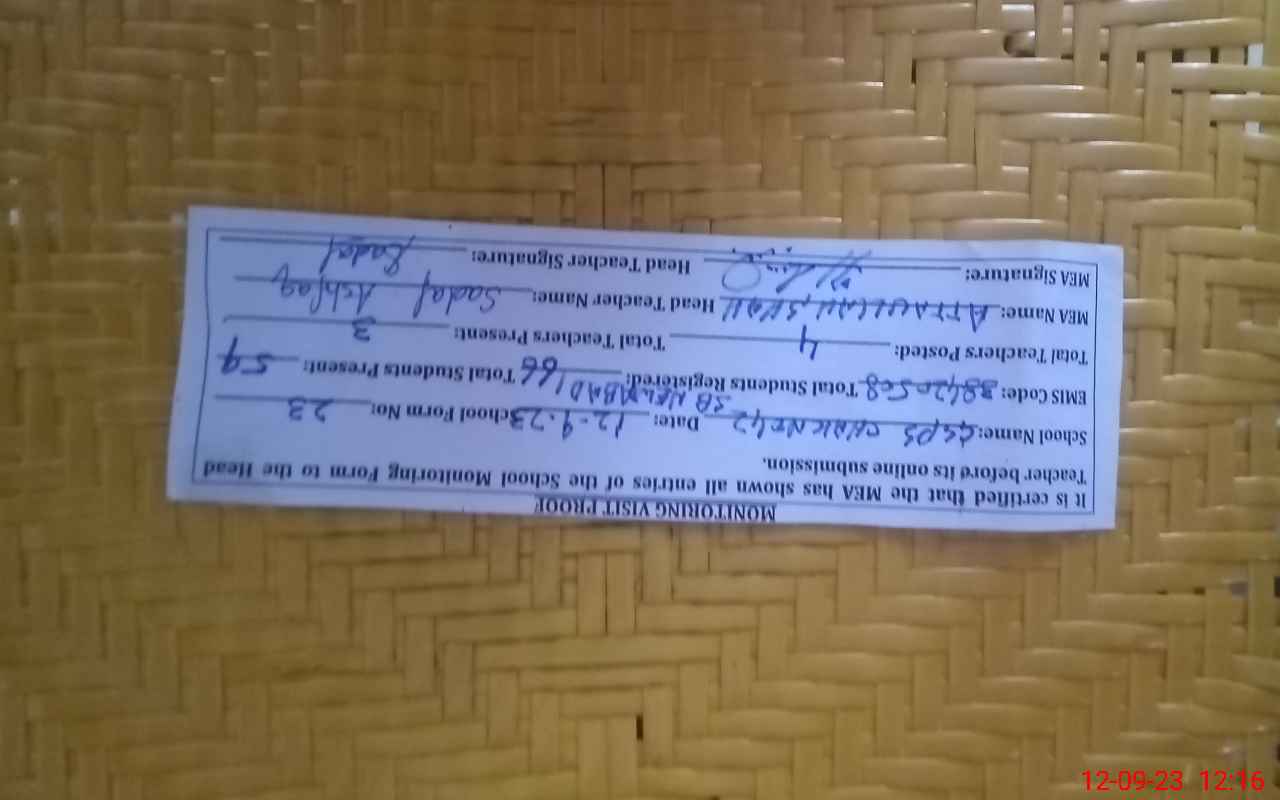 MONITORING VISIT PROOF
It is certified that the MEA has shown all entries of the School Monitoring Form to the Head
Teacher before its online submission.
School Name: GGPS CHAK NO 42 SB Date: 12-9-23 School Form No: 23
EMIS Code: 38420508 Total Students Registered: 66 Total Students Present: 59
Total Teachers Posted: 4 Total Teachers Present: 3
MEA Name: Head Teacher Name: Sadaf Ashfaq
MEA Signature: Head Teacher Signature: Sadaf
12-09-23 12:16